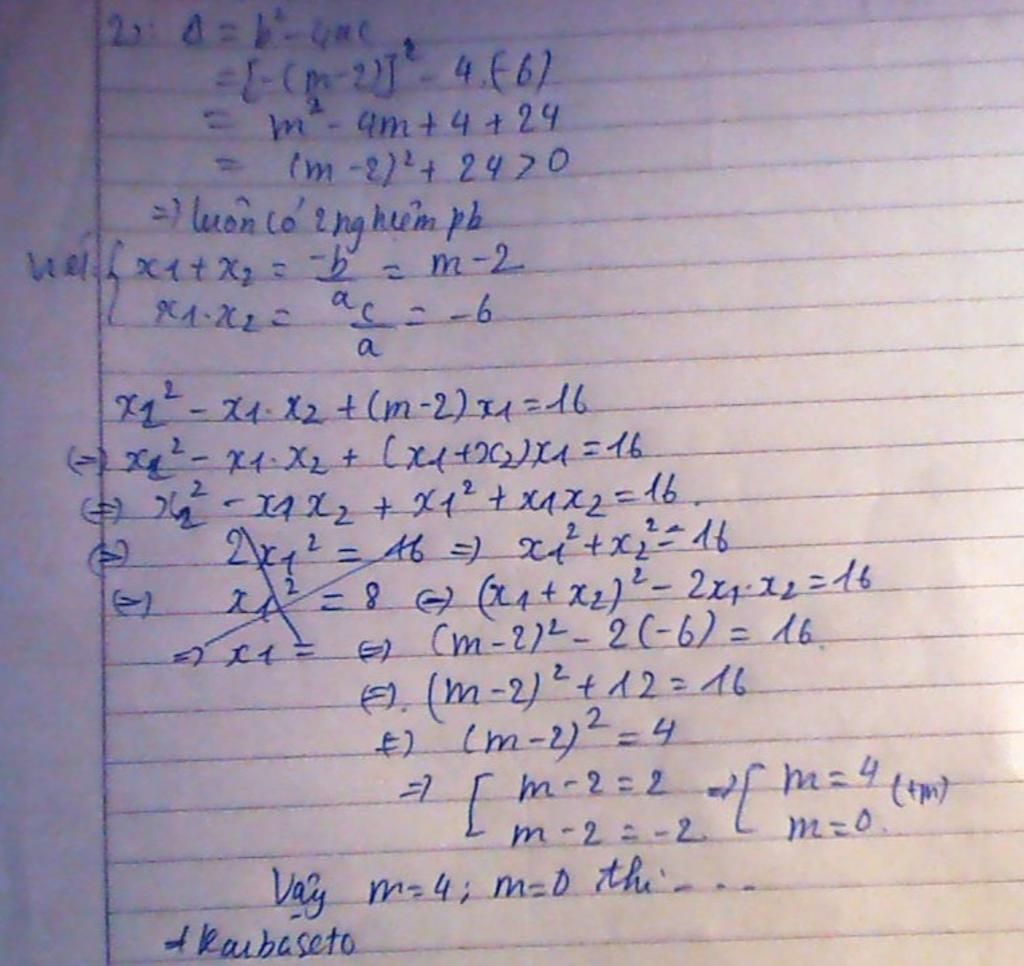 2): Δ = b² - 4ac
= [-(m-2)]² - 4.(-6)
= m² - 4m + 4 + 24
= (m-2)² + 24 > 0
=> luôn có 2 nghiệm pb
{ x1 + x2 = -b/a = m - 2
x1.x2 = c/a = -6
x2² - x1.x2 + (m-2)x1 = 16
(=) x2² - x1.x2 + (x1+x2)x1 = 16
(=) x2² - x1x2 + x1² + x1x2 = 16.
(=) 2x1² = 16 => x1² + x2² = 16
(=) x1² = 8 (=) (x1 + x2)² - 2x1.x2 = 16
=> x1 = (=) (m-2)² - 2(-6) = 16.
(=). (m-2)² + 12 = 16
(=) (m-2)² = 4
=> [ m - 2 = 2 => [ m = 4 (tm)
m - 2 = -2. m = 0.
Vậy m=4; m=0 thì ....